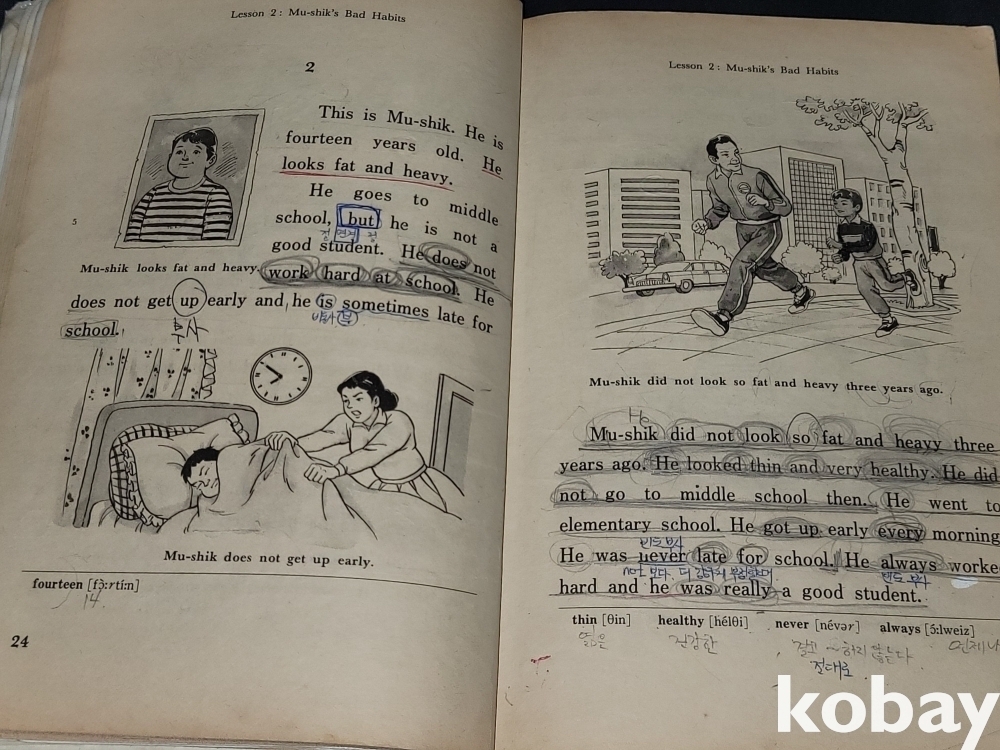 Lesson 2: Mu-shik's Bad Habits
2
This is Mu-shik. He is
fourteen years old. He
looks fat and heavy.
He goes to middle
school, but he is not a
good student. He does not
work hard at school. He
does not get up early and he is sometimes late for
school.
부사
5
Mu-shik looks fat and heavy.
Mu-shik does not get up early.
fourteen [fɔ̀:rtíːn]
14
24
Lesson 2: Mu-shik's Bad Habits
Mu-shik did not look so fat and heavy three years ago.
He
Mu-shik did not look so fat and heavy three
years ago. He looked thin and very healthy. He did
not go to middle school then. He went to
elementary school. He got up early every morning
빈도 부사
He was never late for school. He always worke
not 보다 더 강하게
빈도 부사
hard and he was really a good student.
thin [θin] healthy [hélθi] never [névər] always [ɔ́:lweiz]
얇은 건강한 결코 ~하지 않는다 언제나
절대로
kobay